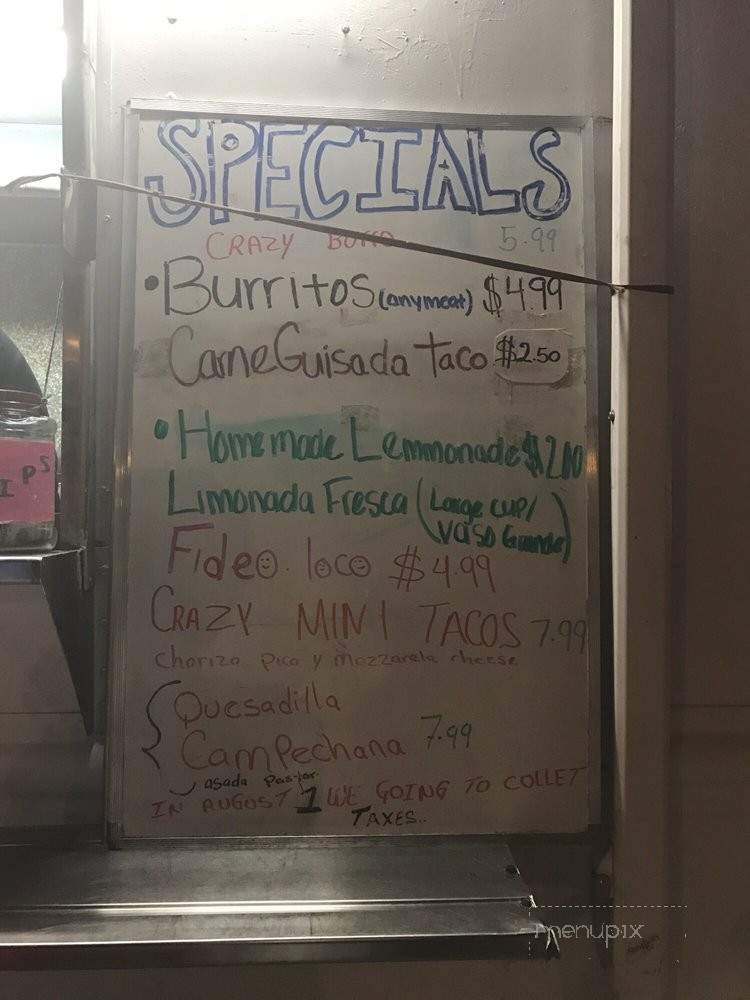 SPECIALS
CRAZY BURRO 5.99
• Burritos (any meat) $4.99
Carne Guisada Taco $2.50
• Homemade Lemmonade $2.00
Limonada Fresca (Large cup/
Vaso Grande)
Fideo loco $4.99
CRAZY MINI TACOS 7.99
Chorizo Pico y Mozzarela cheese
Quesadilla
Campechana 7.99
asada Pastor
IN AUGUST 1 WE GOING TO COLLET
TAXES..
IPS
menupix